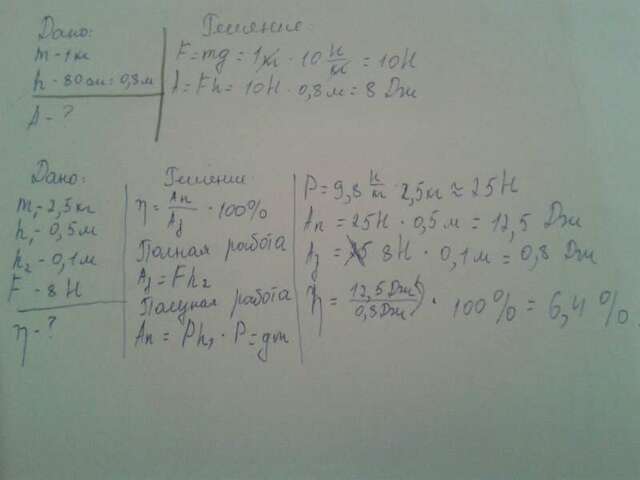 Дано:
m - 1 кг
h - 80 см = 0,8 м
A - ?
Решение:
F = mg = 1 кг · 10 Н/кг = 10 Н
A = Fh = 10 Н · 0,8 м = 8 Дж
Дано:
m₁ - 2,5 кг
h₁ - 0,5 м
h₂ - 0,1 м
F - 8 Н
η - ?
Решение:
η = Aп/Aз · 100%
Полная работа
Aз = Fh₂
Полезная работа
Aп = Ph₁ · P = gm
P = 9,8 Н/кг · 2,5 кг ≈ 25 Н
Aп = 25 Н · 0,5 м = 12,5 Дж
Aз = 8 Н · 0,1 м = 0,8 Дж
η = 12,5 Дж/0,8 Дж · 100% = 6,4 %.